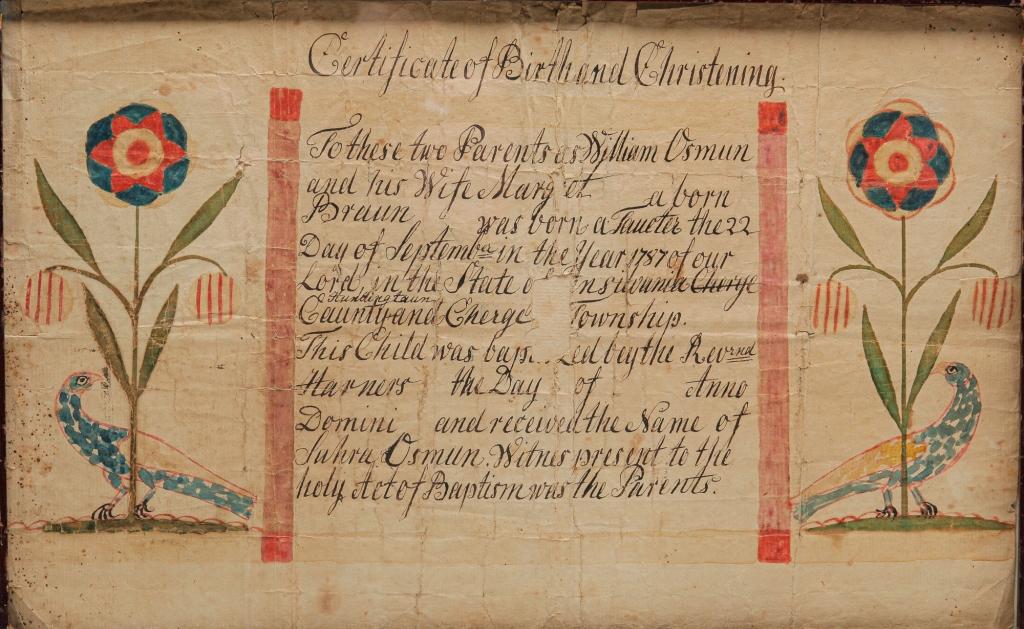 Certificate of Birth and Christening.
To these two Parents as William Osmun
and his Wife Marg et a born
Braun was born a Taucter the 22
Day of Septembr in the Year 1787 of our
Lord, in the State o nsilvania Cherge
Hundingtaun
Caunty and Cherge Township.
This Child was bap.. zed bey the Revrnd
Harners the Day of Anno
Domini and received the Name of
Sahra Osmun. Witnes present to the
holy Act of Baptism was the Parents.